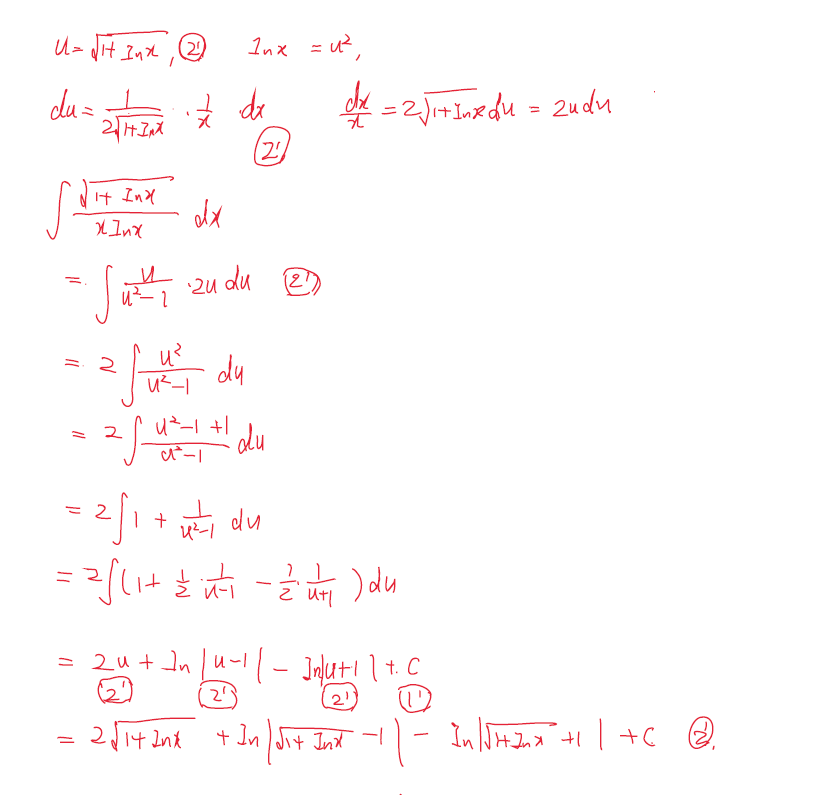 u = √(1+lnx), (2') lnx = u²,
du = 1/(2√(1+lnx)) · 1/x · dx (2') dx/x = 2√(1+lnx) du = 2u du
∫ √(1+lnx)/(x lnx) dx
= ∫ u/(u²-1) · 2u du (2')
= 2 ∫ u²/(u²-1) du
= 2 ∫ (u²-1+1)/(u²-1) du
= 2 ∫ 1 + 1/(u²-1) du
= 2 ∫ (1 + 1/2 · 1/(u-1) - 1/2 · 1/(u+1)) du
= 2u + ln|u-1| - ln|u+1| + C
(2') (2') (2') (1')
= 2√(1+lnx) + ln|√(1+lnx) -1| - ln|√(1+lnx) +1| + C (2').